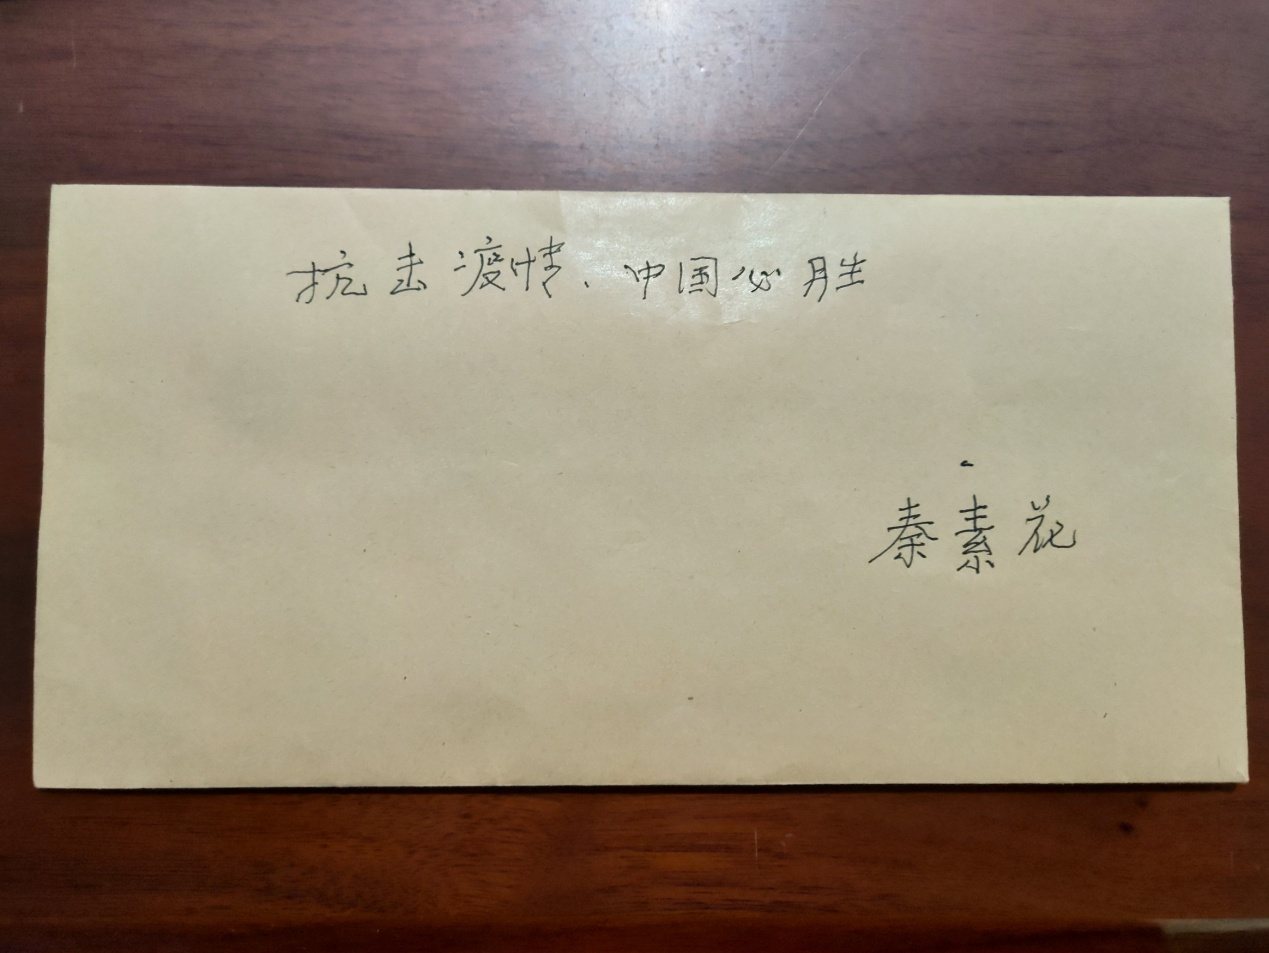 抗击疫情、中国必胜
秦素花